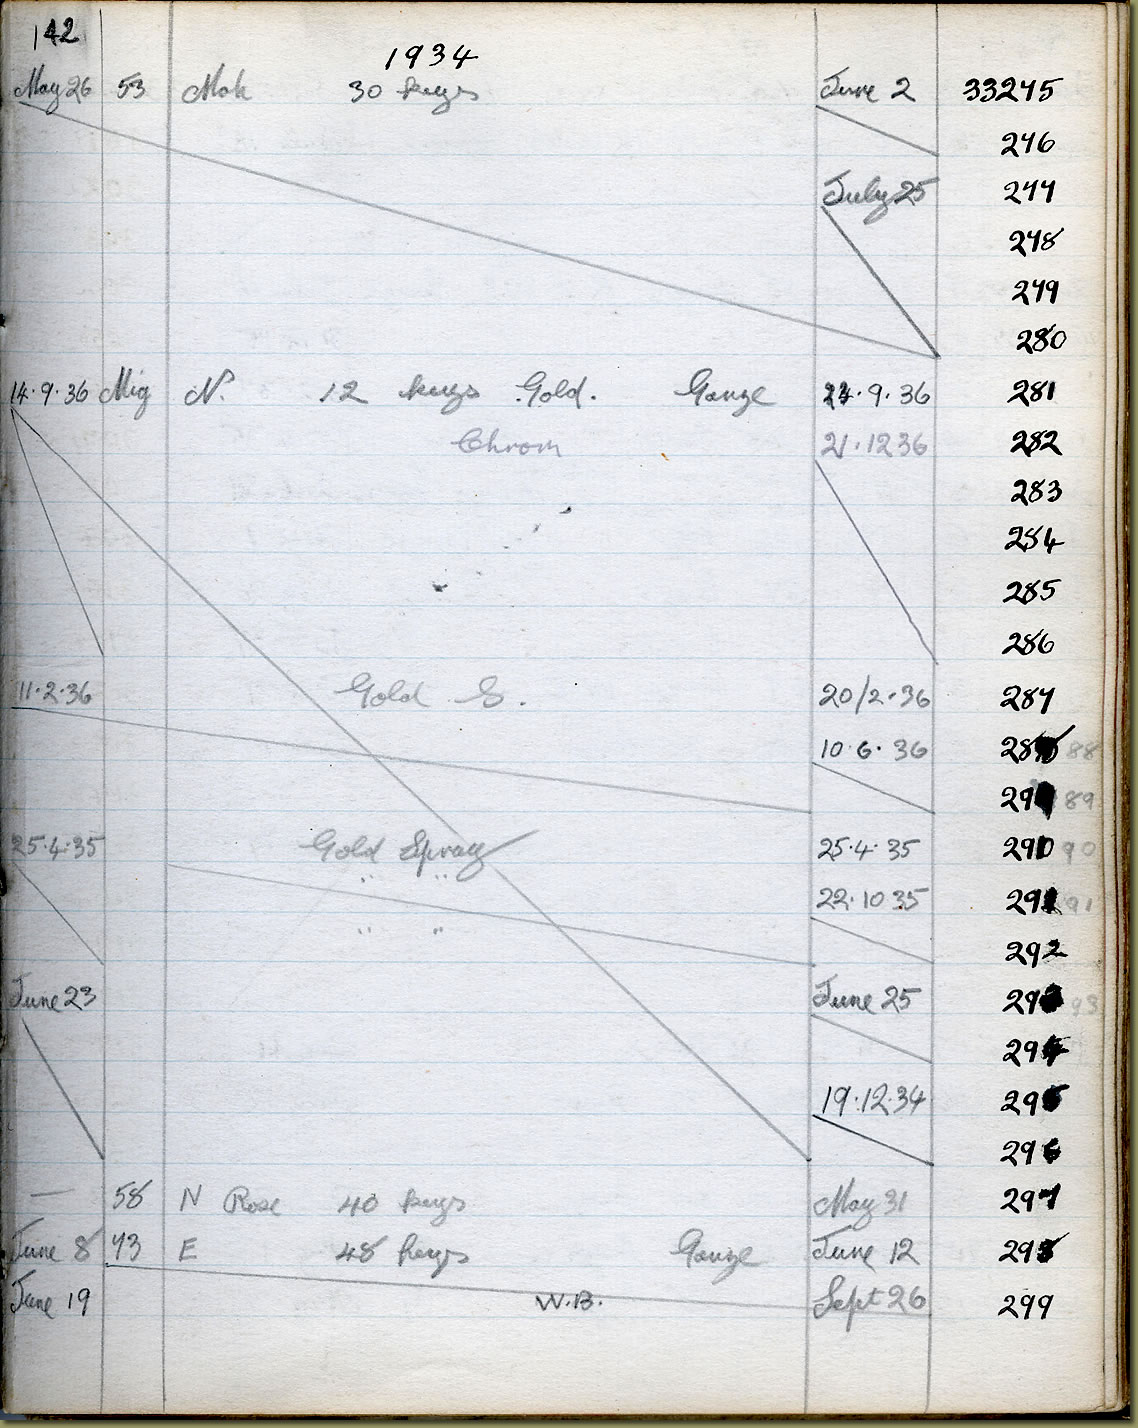 142
1934
May 26 53 Mah 30 keys June 2 33245
246
July 25 247
248
249
280
14.9.36 Mig N. 12 keys Gold. Gauze 24.9.36 281
Chrom 21.12 36 282
283
284
285
286
11.2.36 Gold S. 20/2.36 287
10.6.36 28 88
29 89
25.4.35 Gold Spray 25.4.35 290 90
" " 22.10 35 291 91
" " 292
June 23 June 25 29 93
294
19.12.34 295
296
— 58 N Rose 40 keys May 31 297
June 8 43 E 48 keys Gauze June 12 298
June 19 W.B. Sept 26 299